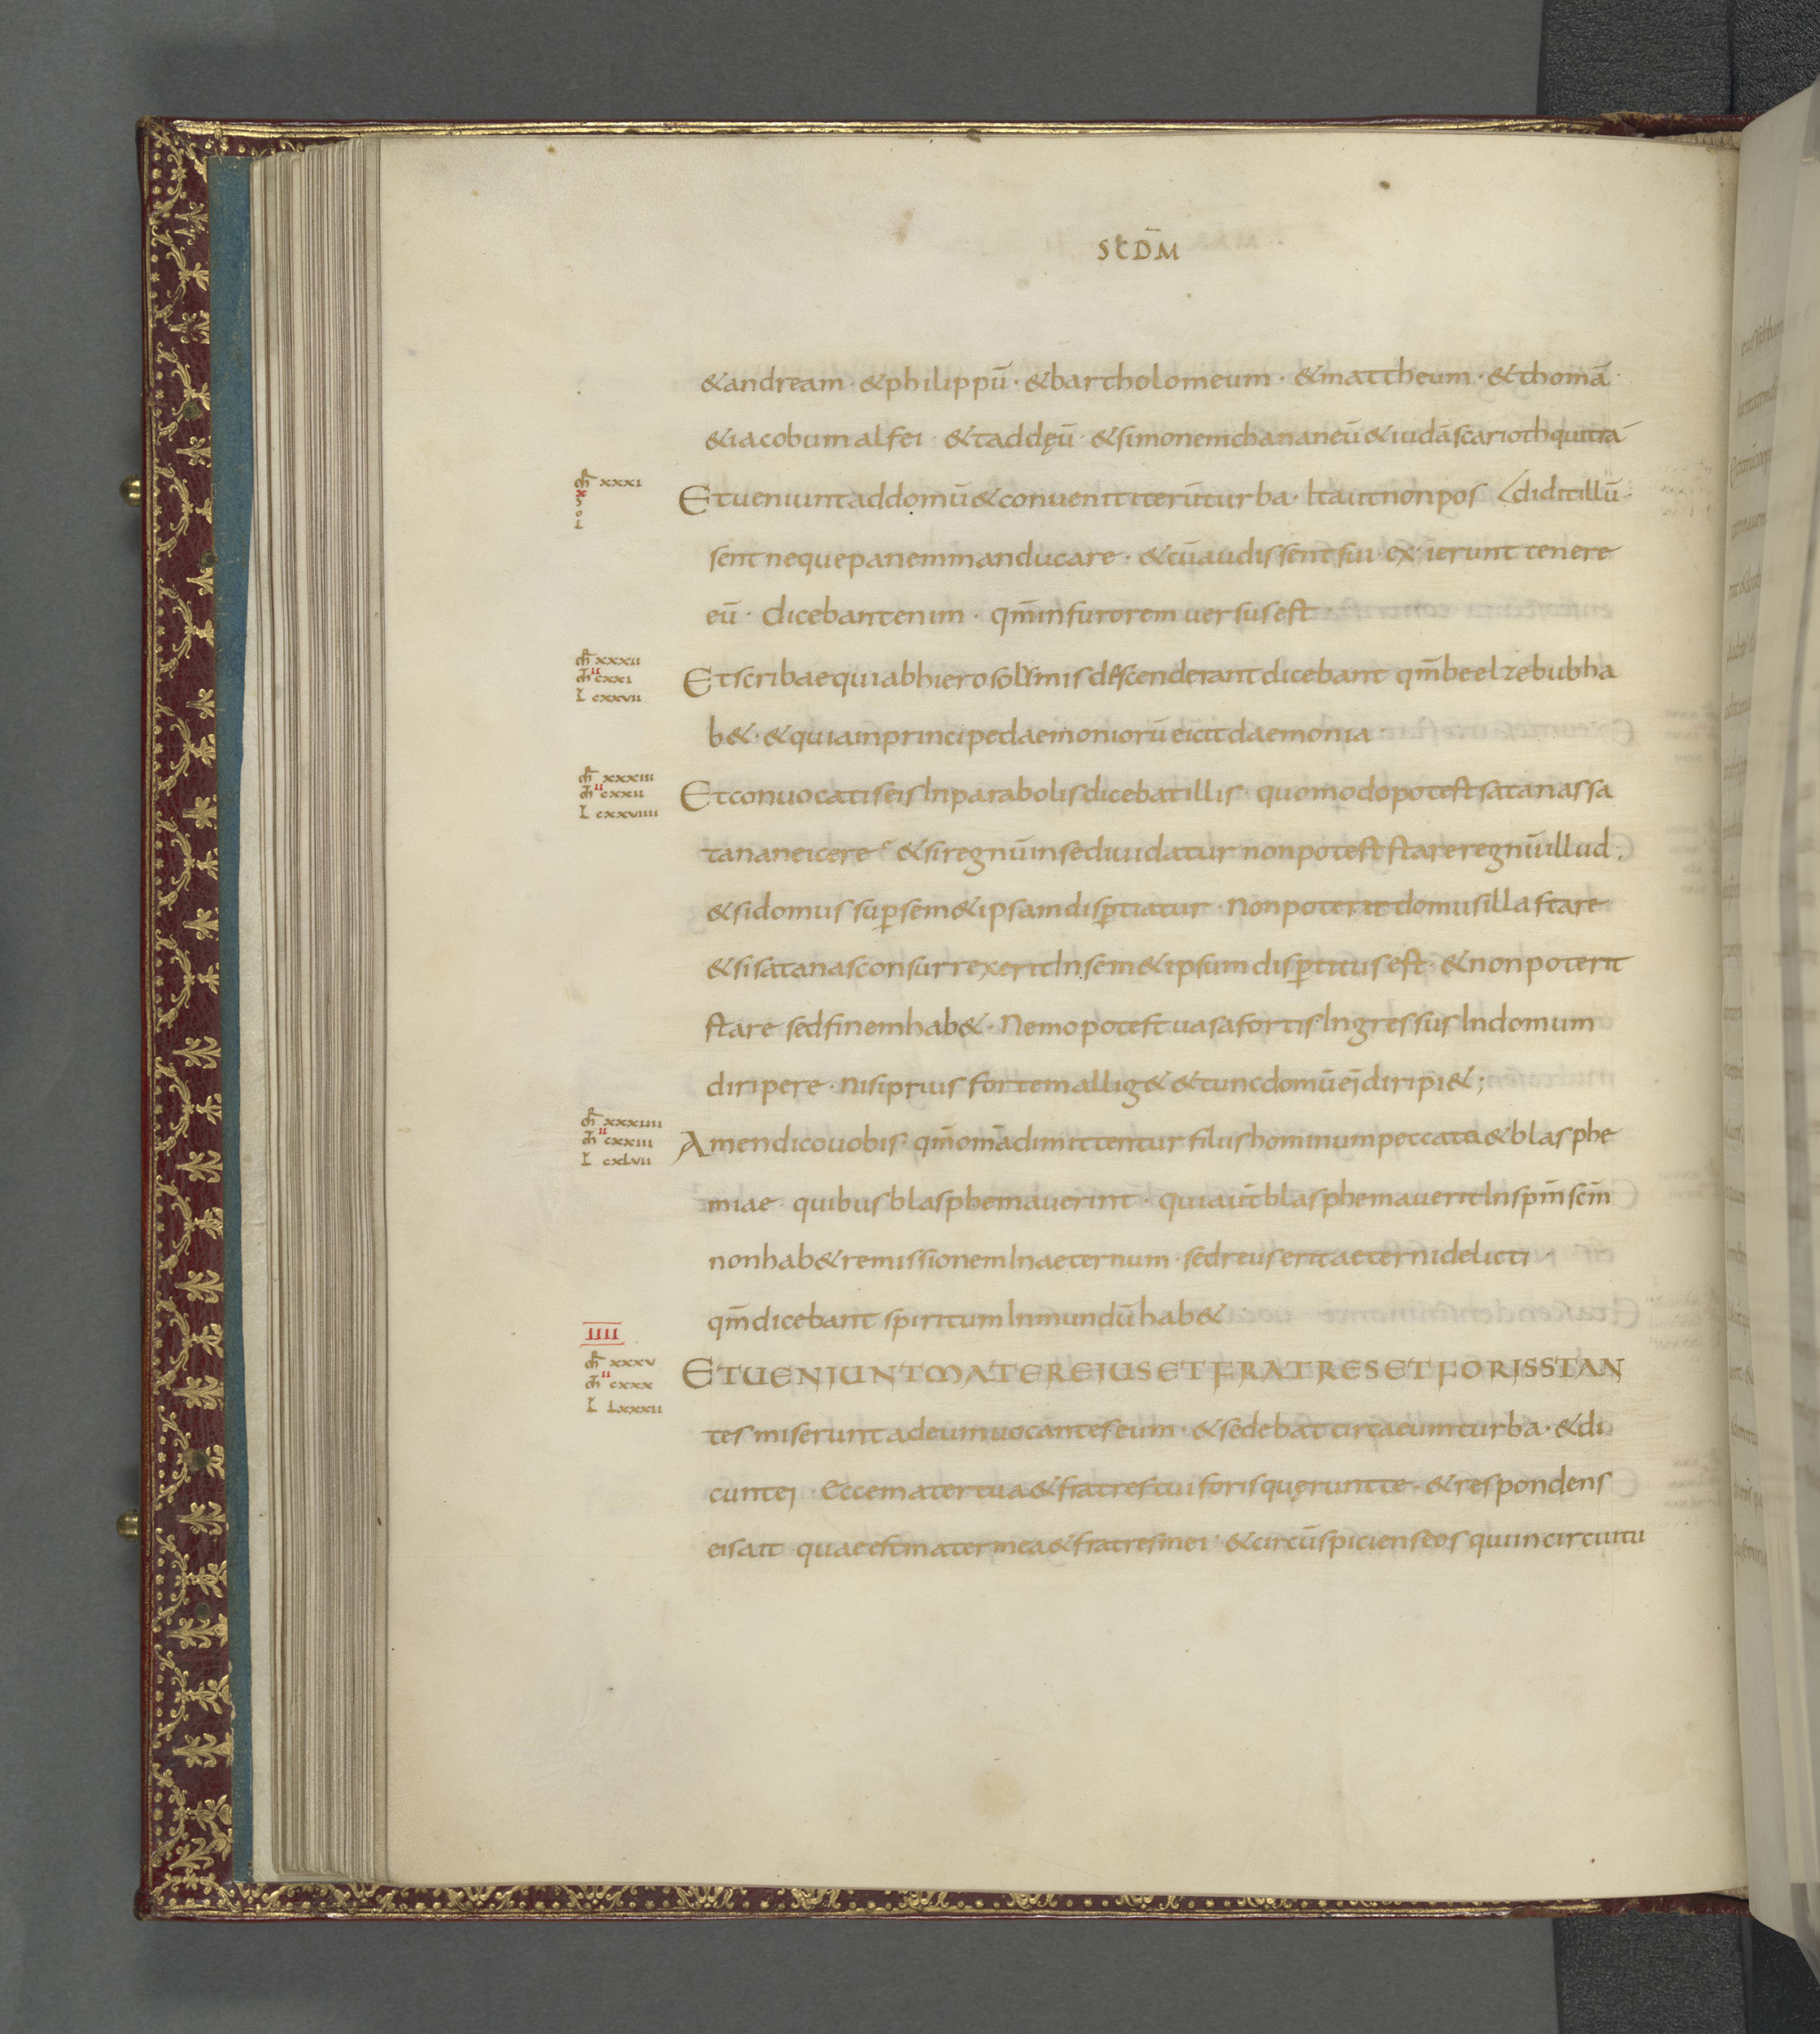 SCD̄M
&andream · &philippū · &bartholomeum · &mattheum · &thomā
&iacobumalfei · &taddęū · &simonemchananeū&iudāscariothquitrá
m̄r xxxı
x
s
o
L
Etueniuntaddomū&conuenititerūturba · Itautnonpos 〈diditillū ·
sentnequepanemmanducare · &cūaudissentsui · exierunttenere
eū · dicebantenim · qm̄infuroremuersusest
m̄r xxxıı
m̄t cxxı ıı
L cxxvıı
Etscribaequiabhierosolimisdescenderantdicebant qm̄beelzebubha
b& · &quiainprincipedaemoniorūeicitdaemonia ·
m̄r xxxııı
m̄t cxxıı ıı
L cxxvıııı
Etconuocatiseisinparabolisdicebatillis · quomodopotestsatanassa
tananeicere &siregnūinsediuidatur nonpoteststareregnūillud ;
&sidomussup̄sem&ipsamdisp̄tiatur · Nonpoteratdomusillastare
&sisatanasconsurrexeritInsem&ipsumdisp̄titusest · &nonpoterit
stare sedfinemhab& · NemopotestuasafortisIngressusIndomum
diripere · nisipriusfortemallig& &tuncdomūej̄diripi& ;
m̄r xxxıııı
m̄t cxxııı ıı
L cxLvıı
Amendicouobis qm̄om̄adimittenturfiliushominumpeccata&blasphe
miae quibusblasphemauerint · quiaūtblasphemaueritInspm̄scm̄
nonhab&remissionemInaeternum · sedreuseritaeternidelicti ·
qm̄dicebant spiritumInmundūhab&
IIII
m̄r xxxv
m̄t cxxx ıı
L Lxxxıı
ETUENIUNTMATEREIUSETFRATRESETFORISSTAN
tesmiseruntadeumuocanteseum · &sedebatcircaeumturba · &di
cuntej · Eccematertua&fratrestuiforisquęruntte · &respondens
eisait quaeestmatermea&fratresmei · &circūspicienseos quiincircuitu